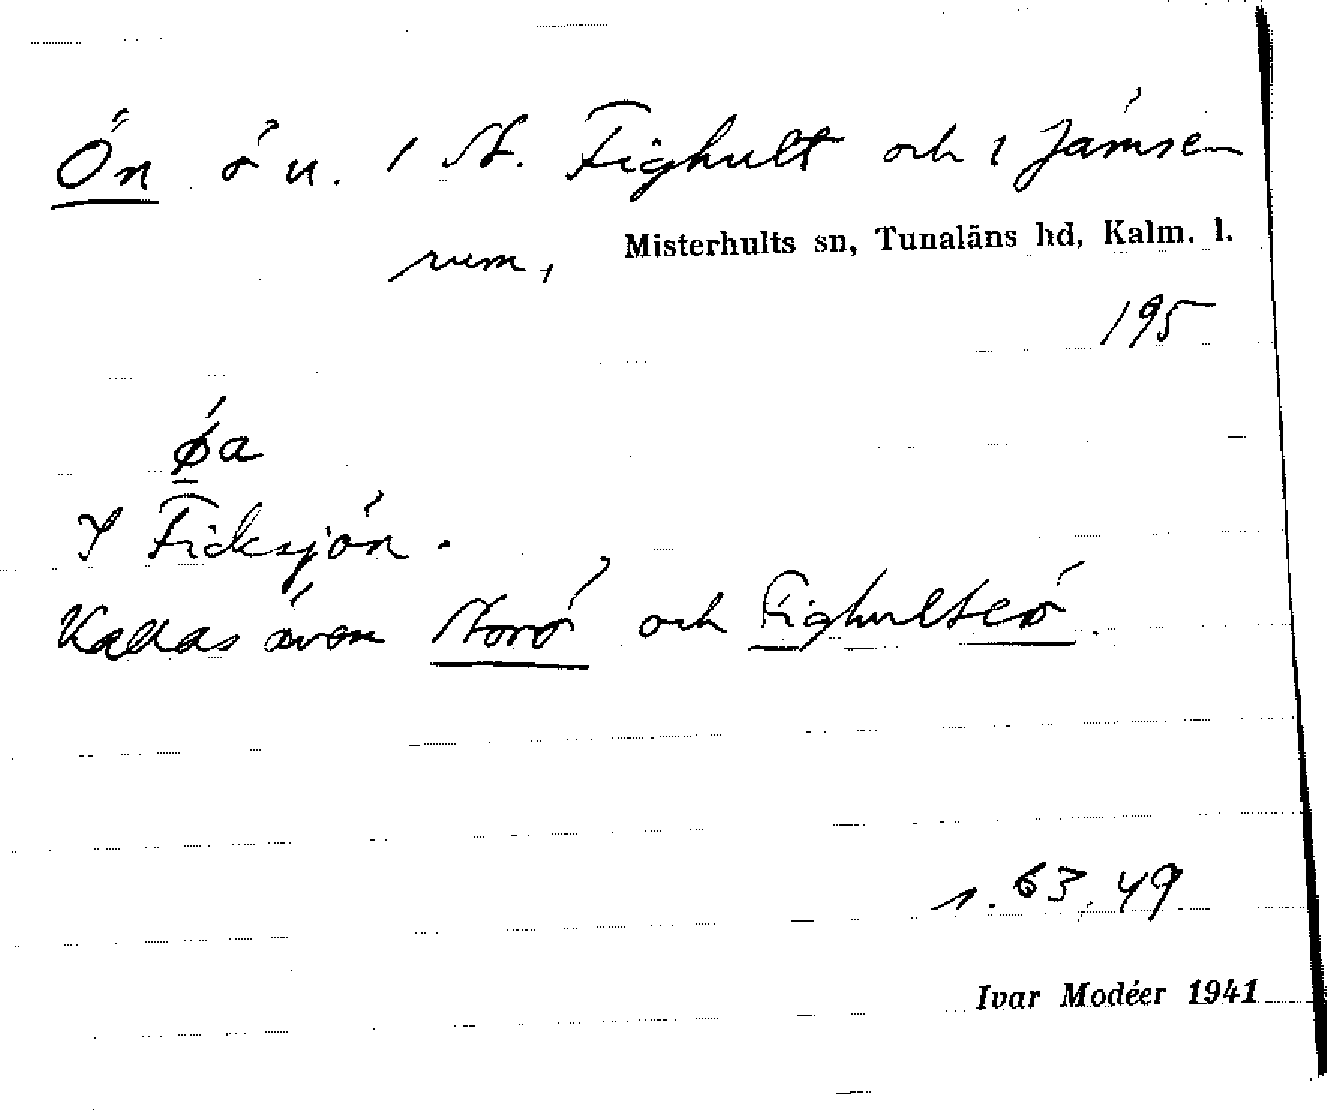 Ön ö u. 1 St. Fighult och 1 Jämse-
rum, Misterhults sn, Tunaläns hd, Kalm. l.
195
øa
I Ficksjön.
Kallas även Storö och Fighultsö.
s. 63, 49
Ivar Modéer 1941